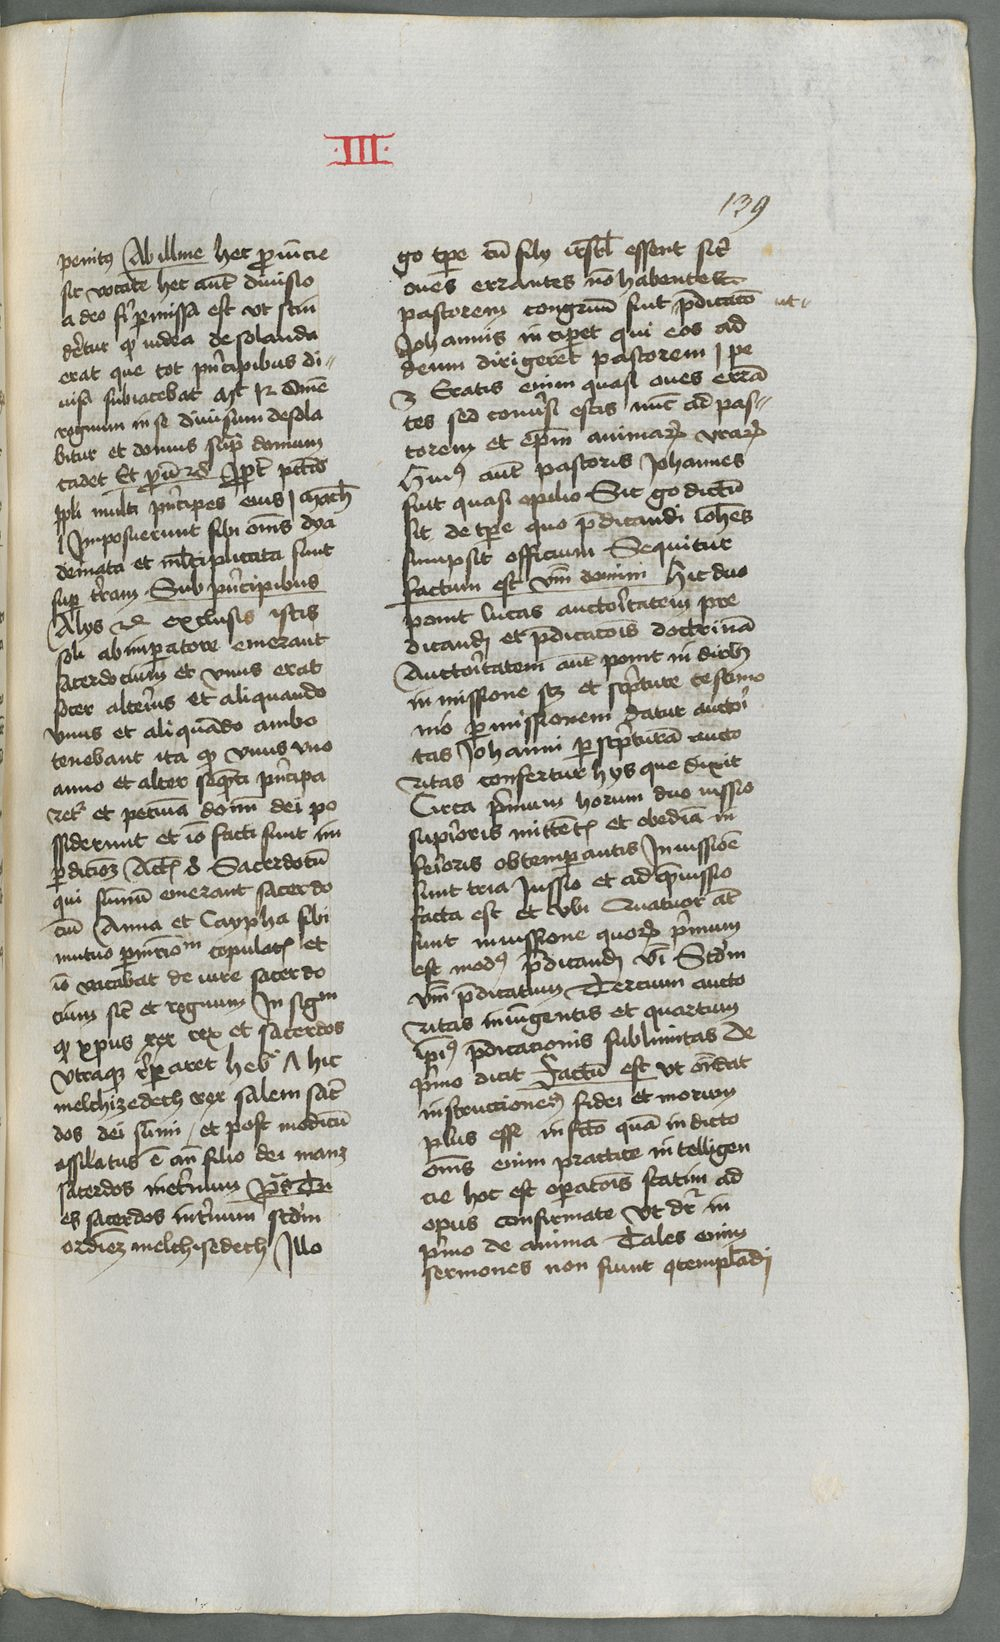 ·III·
139
penitus Abilline hec prouincie
sic vocate hec aut diuisio
a deo sic permissa est vt scin
deretur qd iudea desolanda
erat que tot principibus di-
uisa subiacebat omne
regnum in se diuisum desola
bitur et domus supra domum
cadet Et
ppli multi principes eius
Imposuerunt sibi oms dya
demata et multiplicata sunt
super terram Sub principibus
Alys exclusis istis
soli ab imperatore emerant
sacerdocium et vnus erat
socer alterius et aliquando
vnus et aliquādo ambo
tenebant ita qd vnus vno
anno et alter sequēti principa
ret et pecuniā domini dei po
ssiderunt et io facti sunt in
perdicionem Sacerdotum
qui summū emerant sacerdo
ciū Anna et Caypha sibi
mutuo copulati et
io vacabat de iure sacerdo
cium sic et regnum In signum
qd xpus rex et sacerdos
vtraque repararet heb hic
melchizedech rex salem sacer
dos dei summi et post modicū
assilatus ē aut filio dei manet
sacerdos ineternum ps Tu
es sacerdos ineternum scdm
ordinem melchisedech Illo
go tpe cū filii israhel essent sicut
oues errantes nō habentes
pastorem congruū fuit predicatio
Johannis inciperet qui eos ad
deum dirigeret pastorem pe
Eratis enim quasi oues errā
tes sed conuersi estis nūc ad pas-
torem et epm animarum vrarum
Huius aut pastoris Johannes
fuit quasi opilio Sic go dictū
sit de tpe quo predicandi iohes
sumpsit officium Sequitur
factum est vbm domini Hic duo
ponit lucas auctoritatem pre
dicandi et predicacionis doctrinā
Auctoritatem aut ponit in duobus
in missione scz et scripture testimo
nio per missionem datur auctori
tas Johanni per scripturā aucto
ritas confertur hys que dixit
Circa primum horum duo iussio
superioris mittentis et obediā in
ferioris obtemperantis In iussione
sunt tria Jussio et ad quem iussio
facta est et vbi Quatuor aut
sunt in iussione quorum primum
est modus predicandi Scdm
vbm predicatum Tercium aucto
ritas iniungentis et quartum
ipius predicationis sublimitas De
primo dicit Factū est vt ondat
instructionem fidei et morum
plus esse in fcto quam in dicto
oms enim practice intelligen
cie hoc est operacōis statim ad
opus confirmate vt dr in
primo de anima Tales enim
sermones non sunt contemplandi